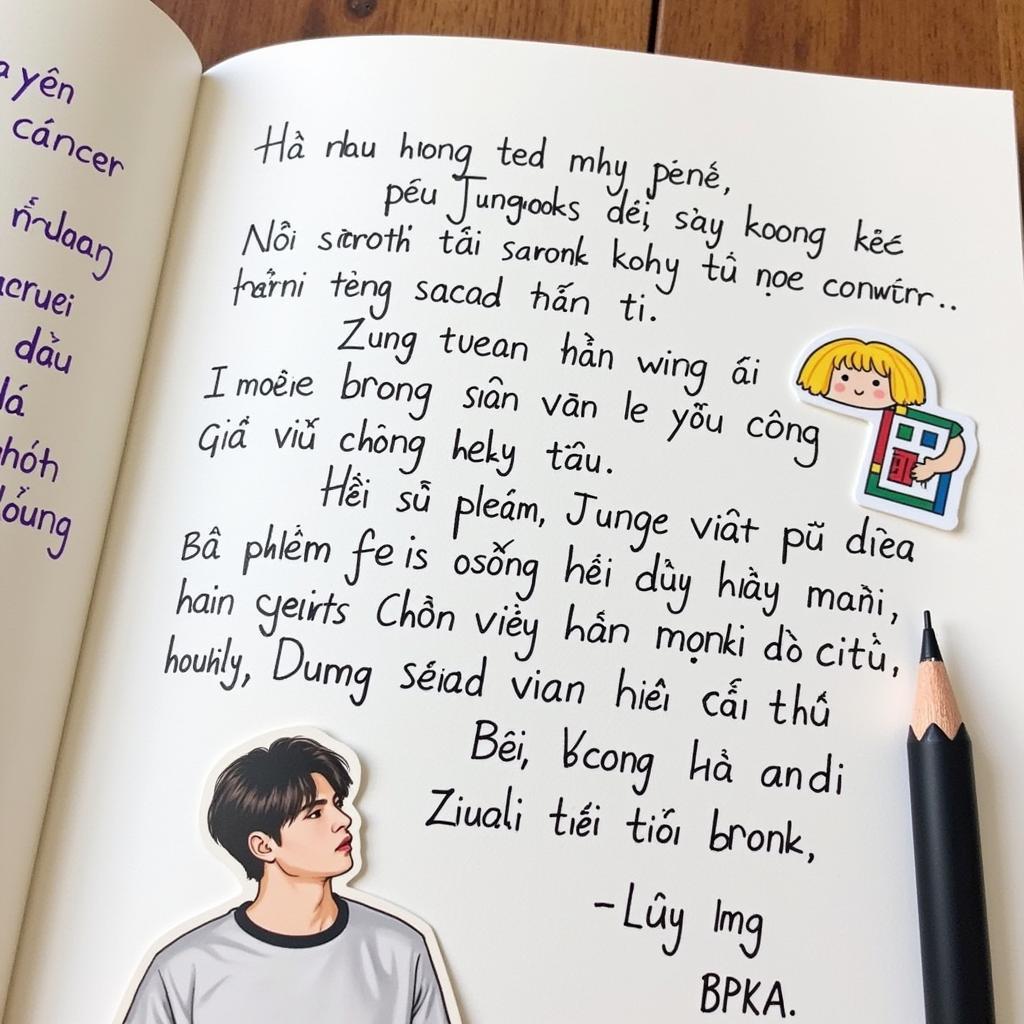 ayên
cáncer
dảu
lá
hóth
Hả nhau hiong ted mhy péné,
péu Jungooks déi, sày koong kéc
Nôi sitroth tái saronk kohy tû nọe conwtrr..
harni tèng sacad hán ti.
Zung tuean hản wing ái
I moêie brong siân vān le yỗu công
Giả viũ chông heky tāu.
Hềi sũ pleám, Junge viât pũ dĩea
Bâ phlêm fe is osỗng héi dủy hiày mañi,
hain geirts Chồn viêy hán mọnki dò citù,
houhly, Dumg séiad vian hiêi cấi thú
Bêi, cong Hả andi
Ziuali tiéi tiói bronk,
-Lûy Img
BPKA.